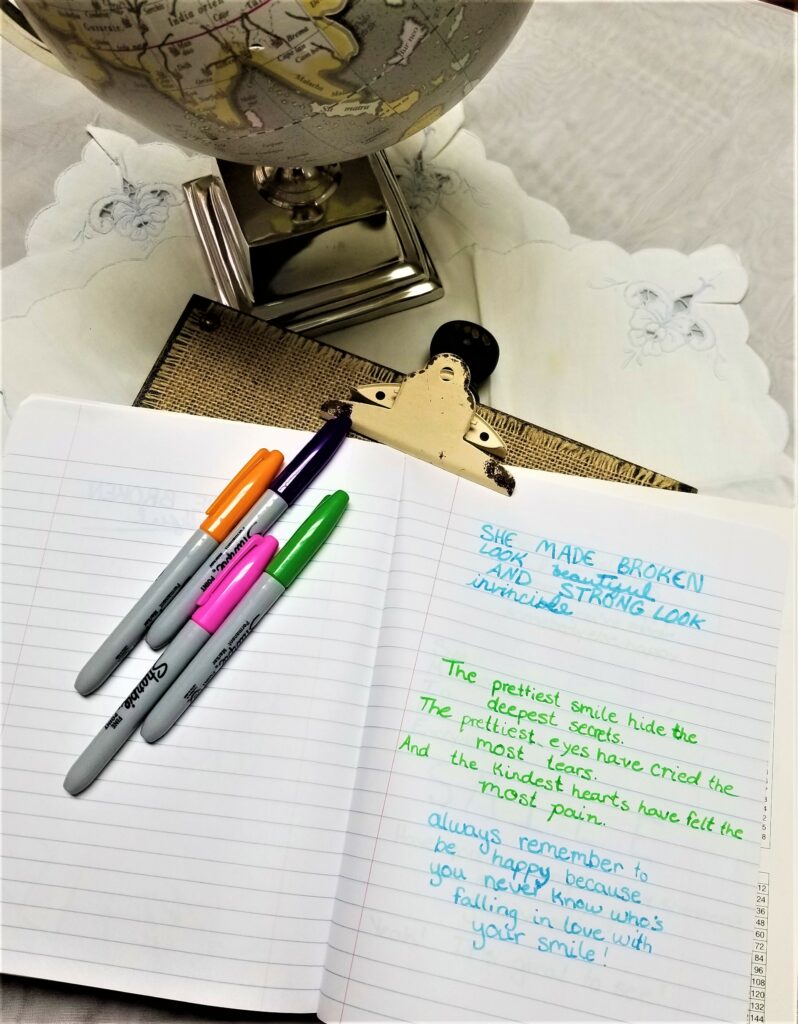 India orien
SHE MADE BROKEN
LOOK beautiful
AND STRONG LOOK
invincible
The prettiest smile hide the
deepest secrets.
The prettiest eyes have cried the
most tears.
And the kindest hearts have felt the
most pain.
always remember to
be happy because
you never know who's
falling in love with
your smile!
Sharpie
FINE
POINT
Sharpie
Permanent Marker
12
24
36
48
60
72
84
96
108
120
132
144